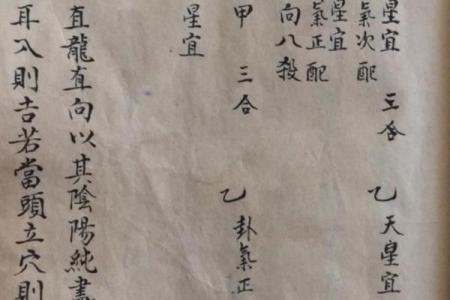 星宜　三合　乙天星宜
氣次配
星宜
氣正配
向八殺
甲　三合　乙卦氣正
星宜
直龍直向以其陰陽純
耳入則吉若當頭立穴則